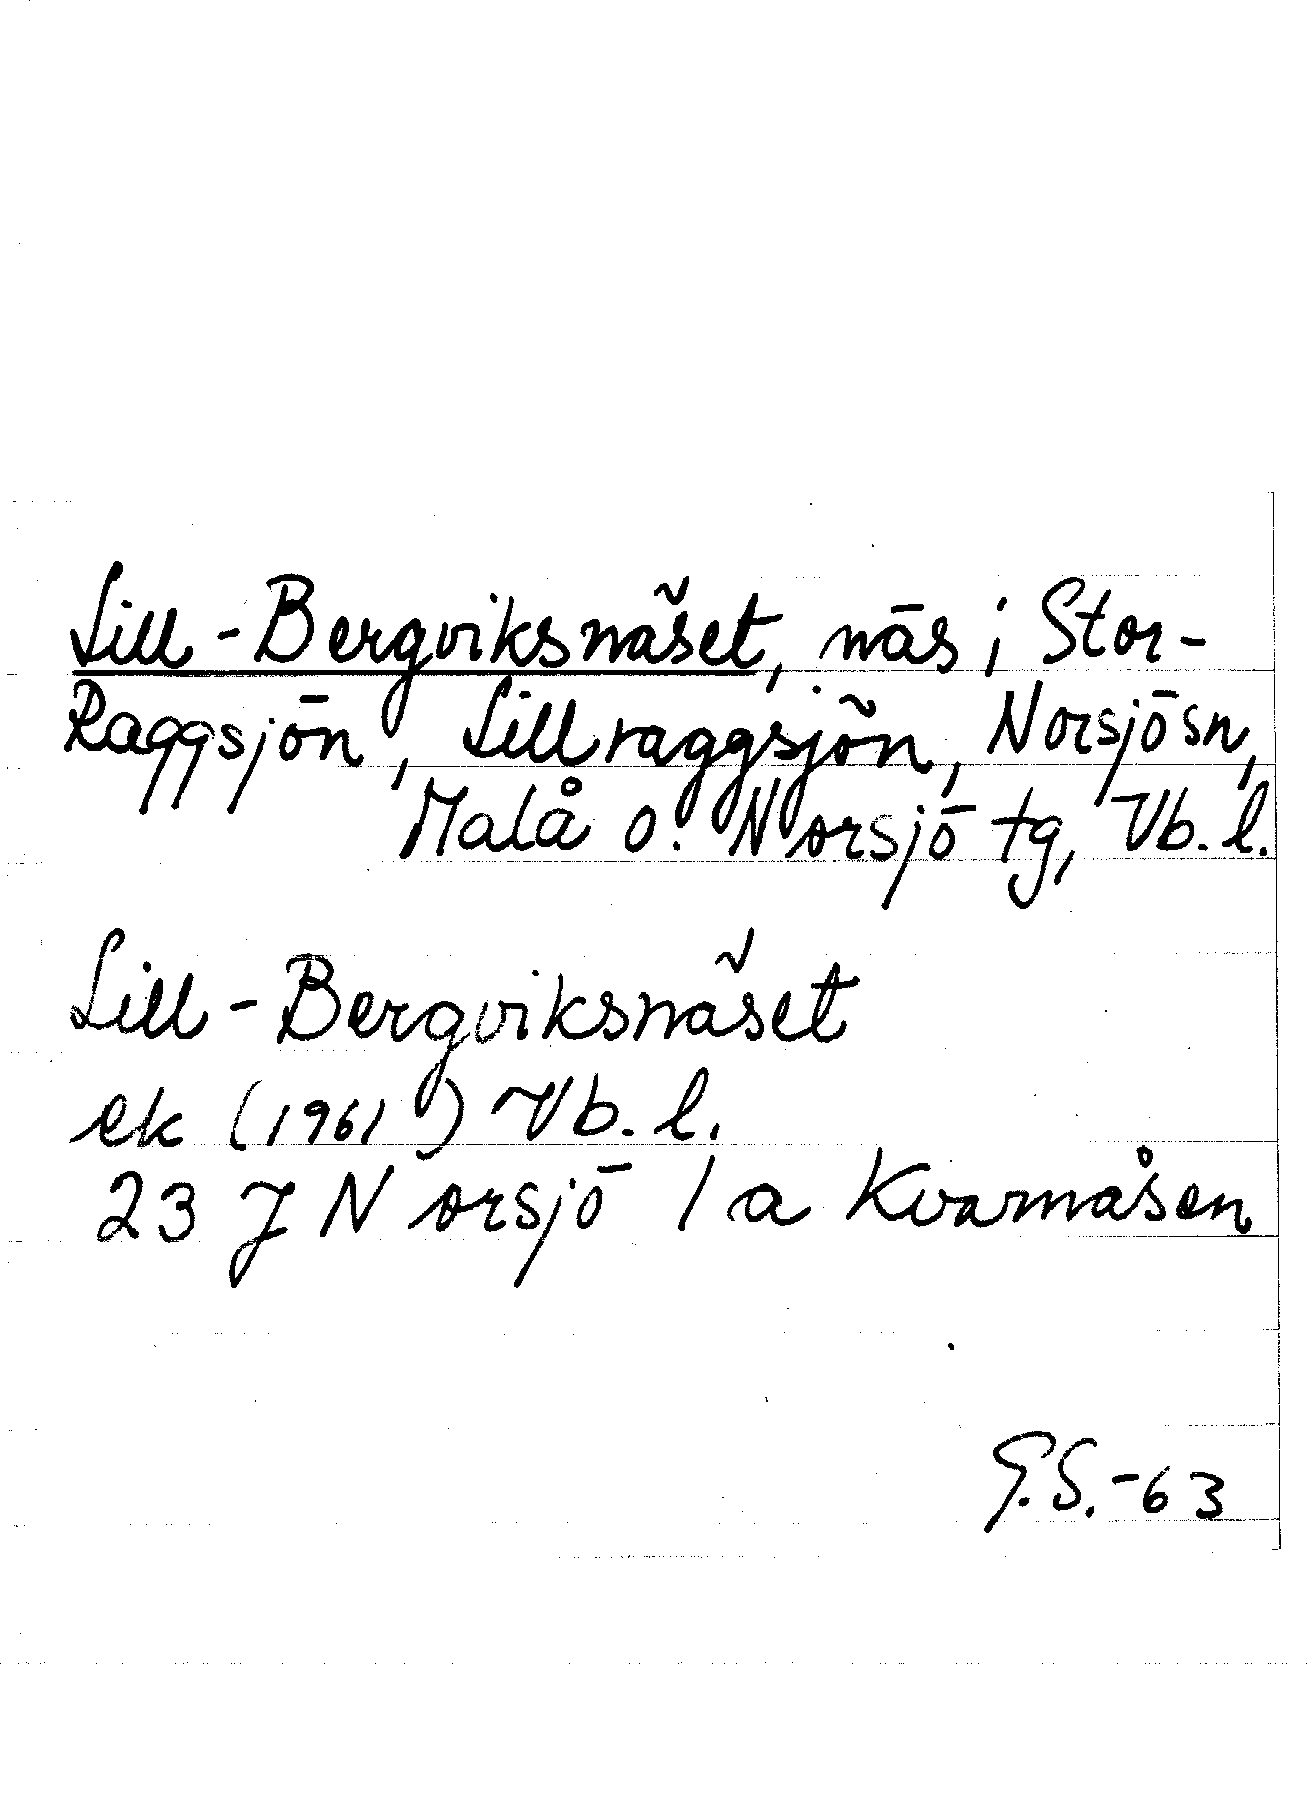 Lill-Bergviksnäset, näs i Stor-
Raggsjön, Lillraggsjön, Norsjö sn,
Malå o. Norsjö tg, Vb. l.
Lill-Bergviksnäset
ek (1961) Vb. l.
23 J Norsjö 1 a Kvarnåsen
G.S.-63